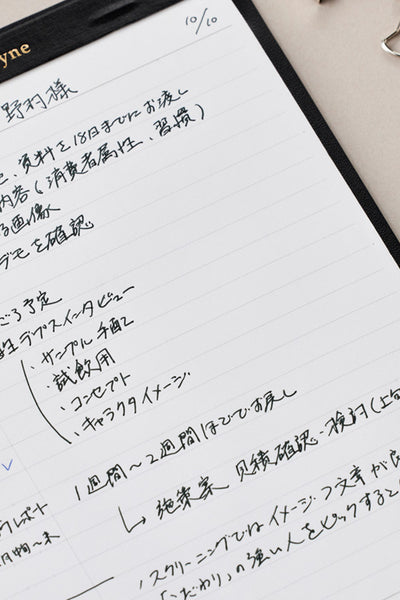 yne
10/10
野村様
、資料を18日までにお渡し
内容(消費者属性、習慣)
画像
デモを確認
ごろ予定
デプスインタビュー
・サンプル手配
試飲用
・コンセプト
・キャラクタイメージ
1週間〜2週間ほどでお戻し
↳ 施策案 見積確認・検討(上旬
レポート
月中旬〜末
スクリーニングではイメージ・文章が良
「こだわり」の強い人をピックすること